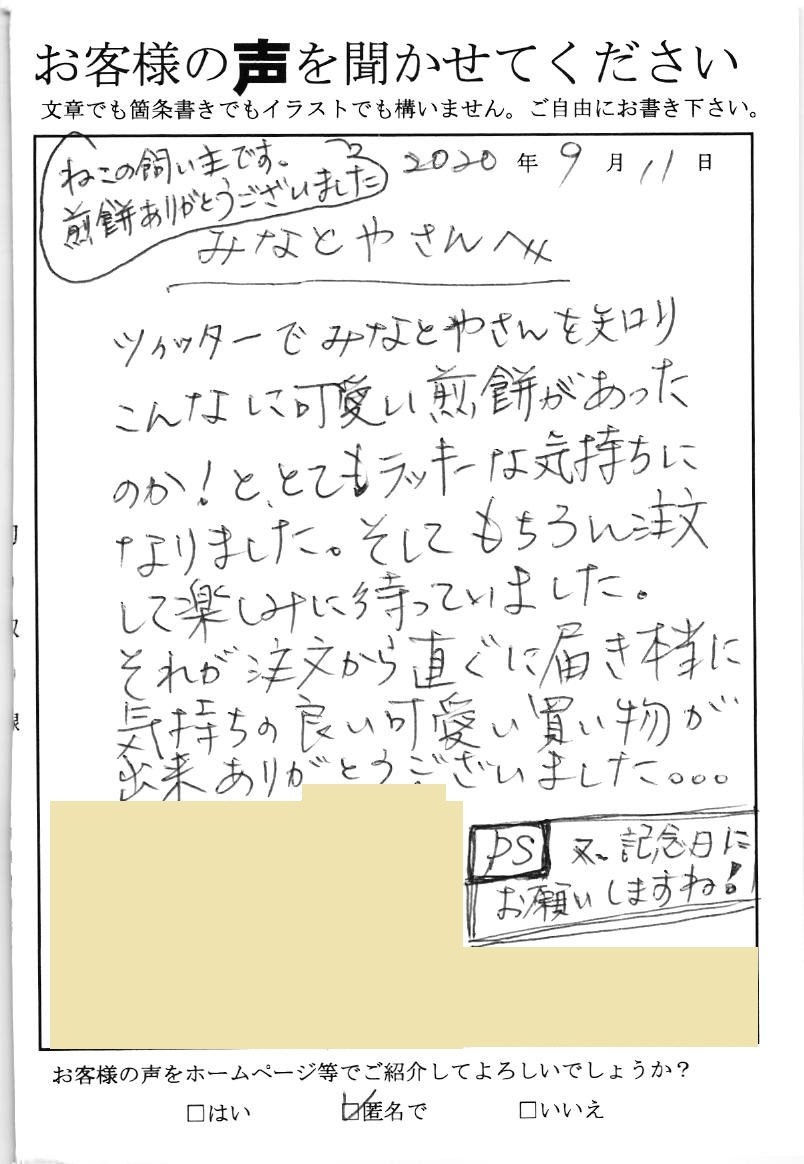 お客様の声を聞かせてください
文章でも箇条書きでもイラストでも構いません。ご自由にお書き下さい。
ねこの飼い主です。
煎餅ありがとうございました
2020年9月11日
みなとやさんへ
ツイッターでみなとやさんを知り
こんなに可愛い煎餅があった
のか!と、とてもラッキーな気持ちに
なりました。そしてもちろん注文
して楽しみに待っていました。
それが注文から直ぐに届き本当に
気持ちの良い可愛い買い物が
出来ありがとうございました。。。
PS 又、記念日に
お願いしますね!
お客様の声をホームページ等でご紹介してよろしいでしょうか?
□はい ☑匿名で □いいえ